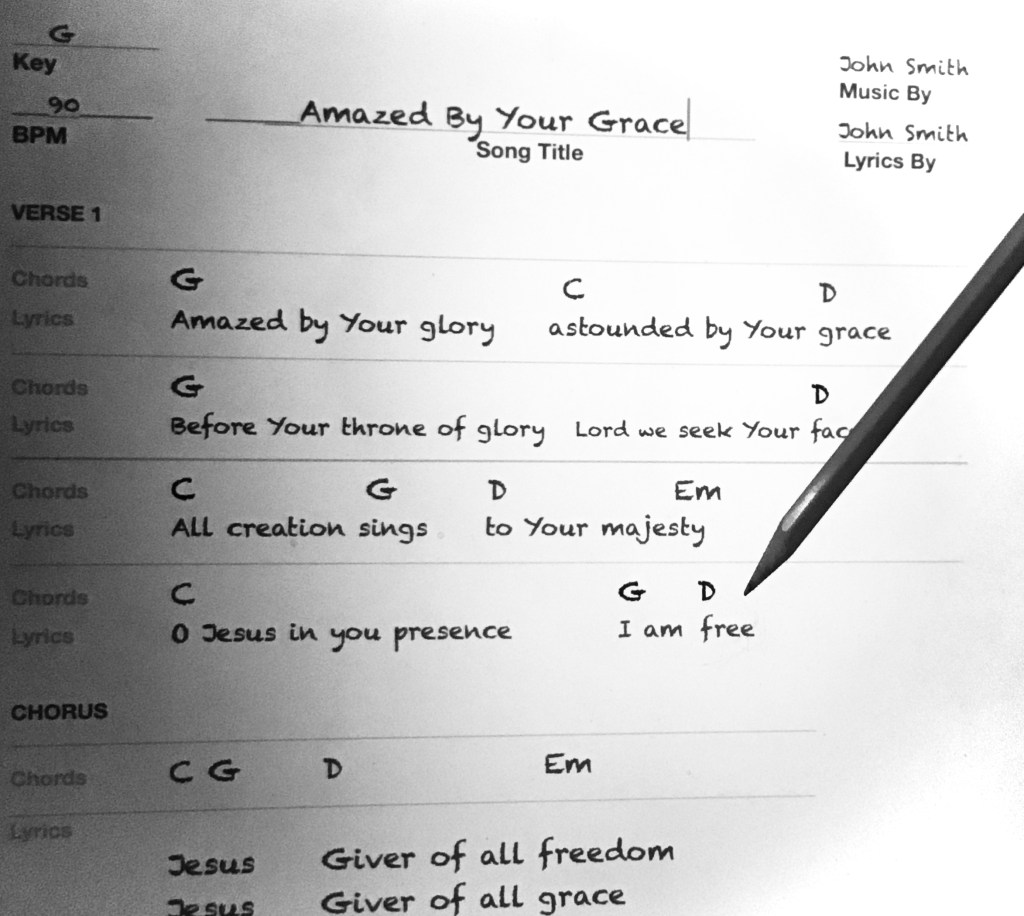 G
Key
90
BPM
Amazed By Your Grace
Song Title
John Smith
Music By
John Smith
Lyrics By
VERSE 1
Chords G C D
Lyrics Amazed by Your glory astounded by Your grace
Chords G D
Lyrics Before Your throne of glory Lord we seek Your
Chords C G D Em
Lyrics All creation sings to Your majesty
Chords C G D
Lyrics O Jesus in you presence I am free
CHORUS
Chords C G D Em
Lyrics
Jesus Giver of all freedom
Jesus Giver of all grace